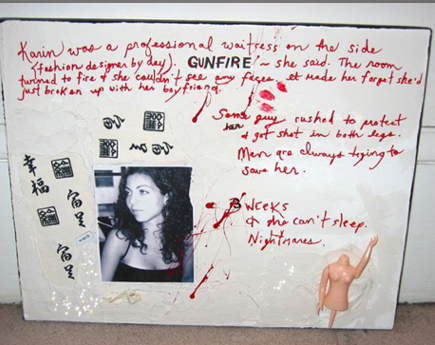 Karin was a professional waitress on the side
(fashion designer by day). GUNFIRE ~ she said. The room
turned to fire & she couldn't see any faces. It made her forget she'd
just broken up with her boyfriend.
Some guy rushed to protect
her & got shot in both legs.
Men are always trying to
save her.
3 WEEKS
& she can't sleep.
Nightmares.
幸福